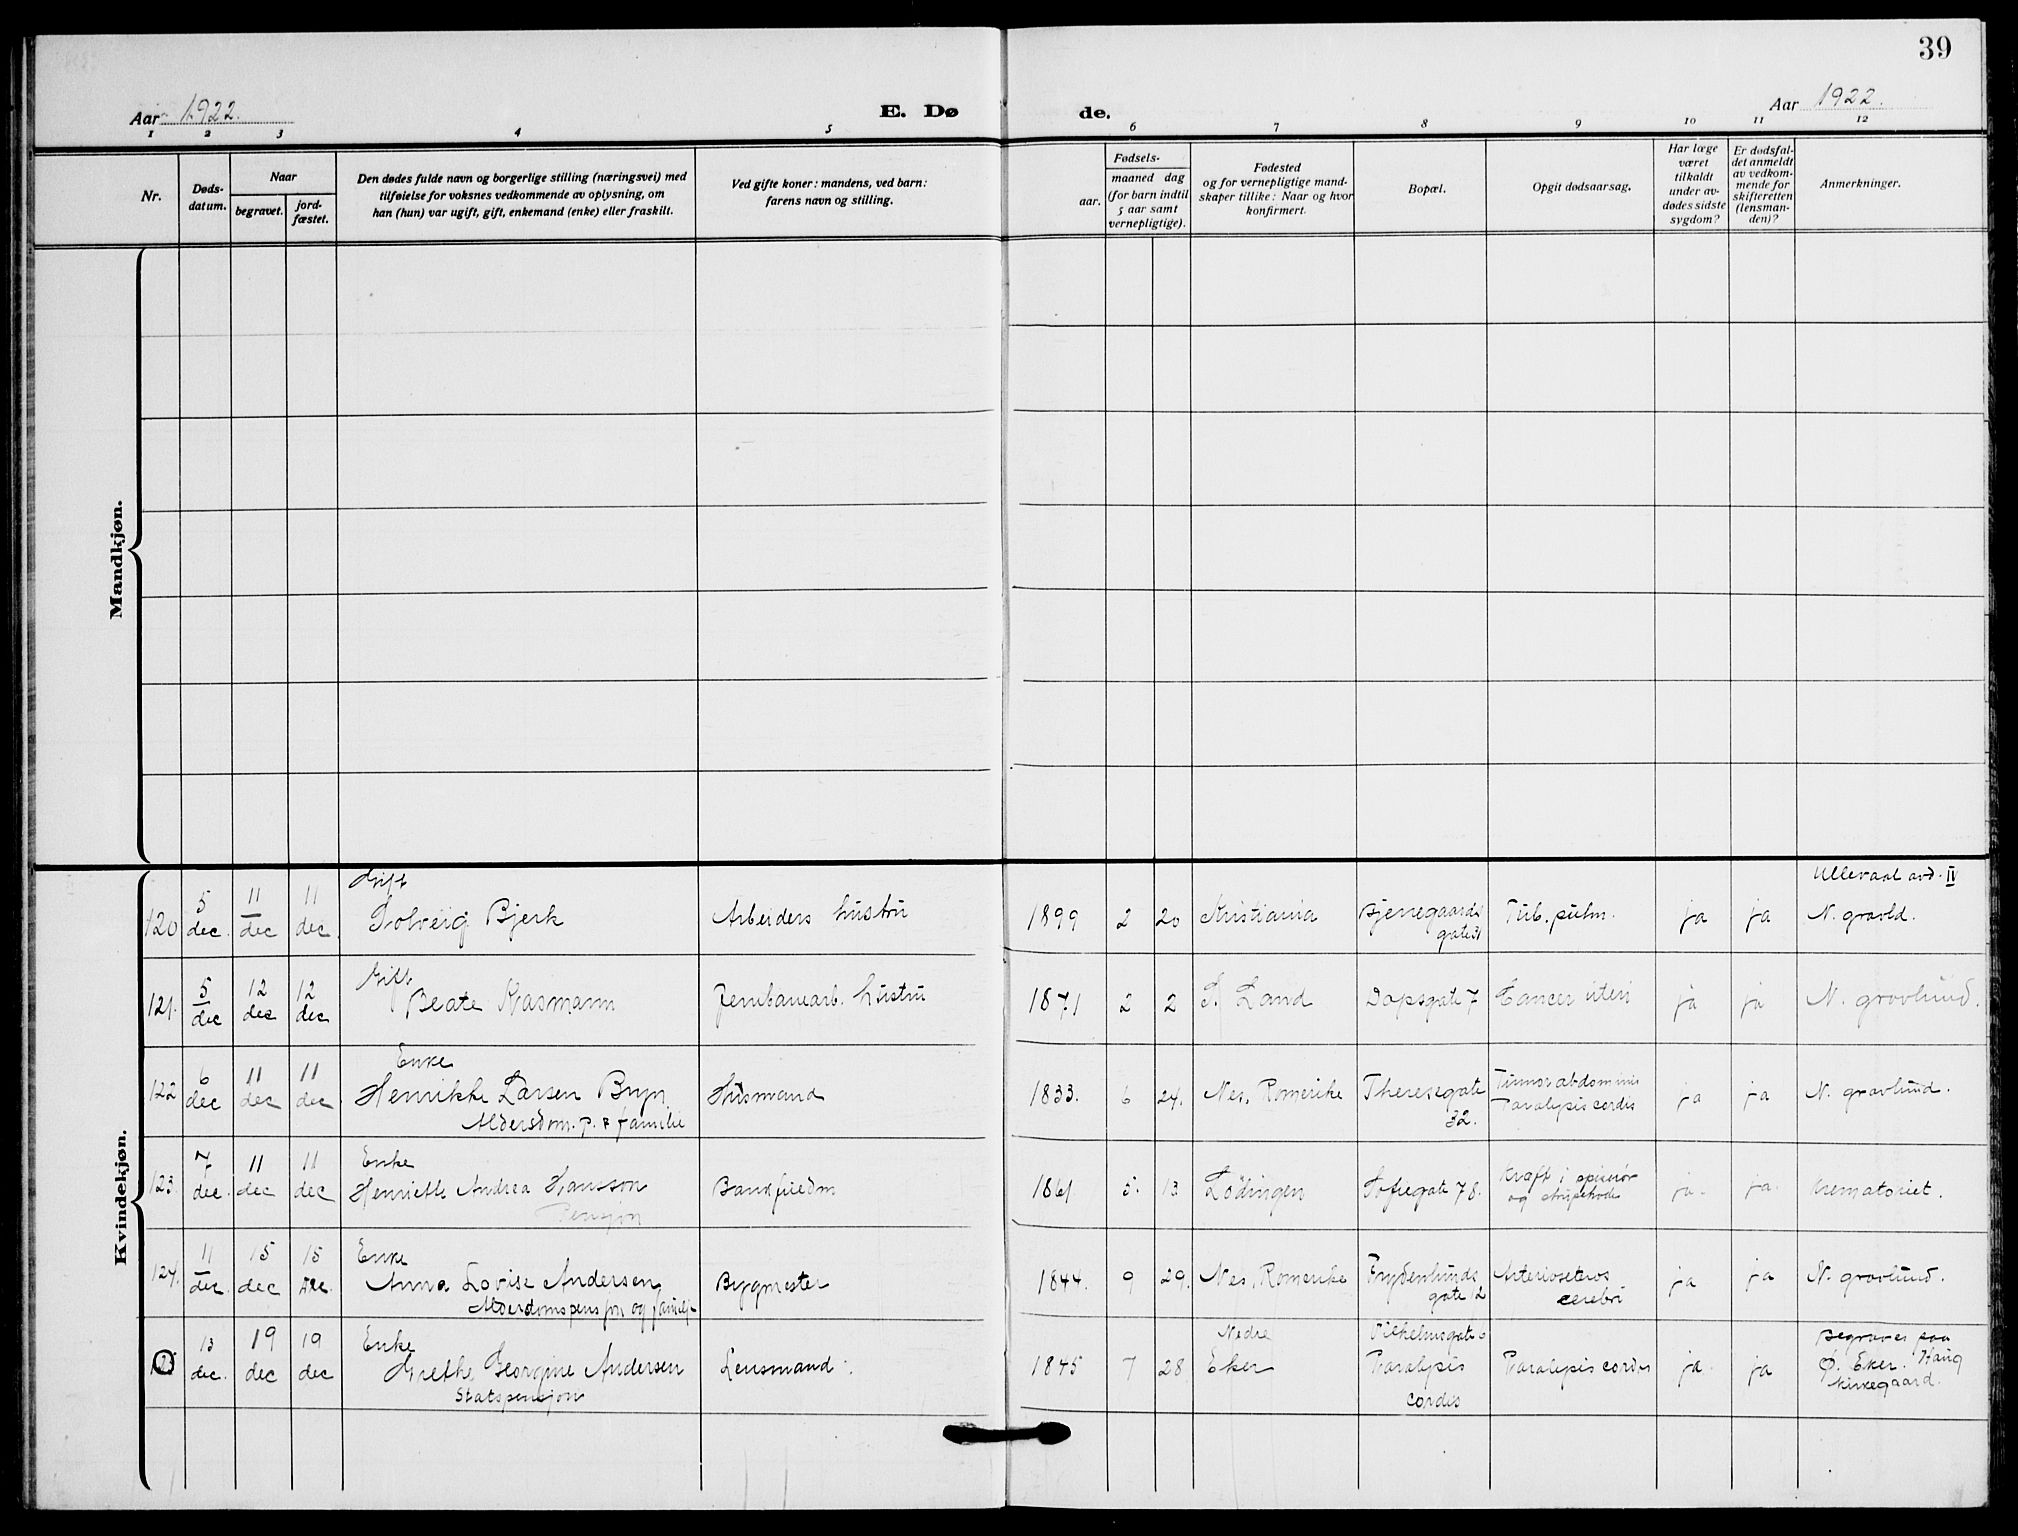 39
Aar 1922.
E. Dø
de.
Aar 1922.
1 2 3 4 5 6 7 8 9 10 11 12
Nr.
Døds-
datum.
Naar
begravet.
jord-
fæstet.
Den dødes fulde navn og borgerlige stilling (næringsvei) med
tilføielse for voksnes vedkommende av oplysning, om
han (hun) var ugift, gift, enkemand (enke) eller fraskilt.
Ved gifte koner: mandens, ved barn:
farens navn og stilling.
Fødsels-
aar.
maaned dag
(for barn indtil
5 aar samt
vernepligtige).
Fødested
og for vernepligtige mand-
skaper tillike: Naar og hvor
konfirmert.
Bopæl.
Opgit dødsaarsag.
Har læge
været
tilkaldt
under av-
dødes sidste
sygdom?
Er dødsfal-
det anmeldt
av vedkom-
mende for
skifteretten
(lensman-
den)?
Anmerkninger.
Mandkjøn.
Kvindekjøn.
120
5
dec.
11
dec
11
dec.
Gift
Solveig Bjerk
Arbeiders hustru
1899
2
20
Kristiania
Bjerregaards
gate 31
Tub. pulm.
ja
ja
Ullevaal avd. IV
N. gravld.
121.
5
dec
12
dec
12
dec
Gift
Beate Kasmann
Jernbanearb. hustru
1871
2
2
S. Land
Dopsgate 7
Cancer uteri
ja
ja
N. gravlund.
122
6
dec
11
dec
11
dec.
Enke
Henrikke Larsen Bryn
Aldersdom. p. & familie
Husmand
1833.
6
24.
Nes, Romerike
Theresegate
32.
Tumor abdominis
Paralysis cordis
ja
ja
N. gravlund.
123.
7
dec.
11
dec
11
dec
Enke
Henriette Andrea Hansson
Pensjon
1861
5.
13
Lødingen
Sofiegate 78.
Kræft i spiserør
og strupehode
ja.
ja.
Krematoriet.
124.
11
dec.
15
dec
15
dec.
Enke
Anna Lovise Andersen
Alderdomspensjon og familje
Bygmester
1844.
9
29.
Nes, Romerike
Frydenlunds
gate 12
cerebri
ja
ja
N. gravlund.
125
13
dec.
19
dec
19
dec
Enke
Grethe Georgine Andersen
Statspensjon
Lensmand.
1845
7
28.
Nedre
Eker
Paralysis
cordis
Paralysis cordis
ja.
ja
Begraves paa
Ø. Eker. Haug
kirkegaard.